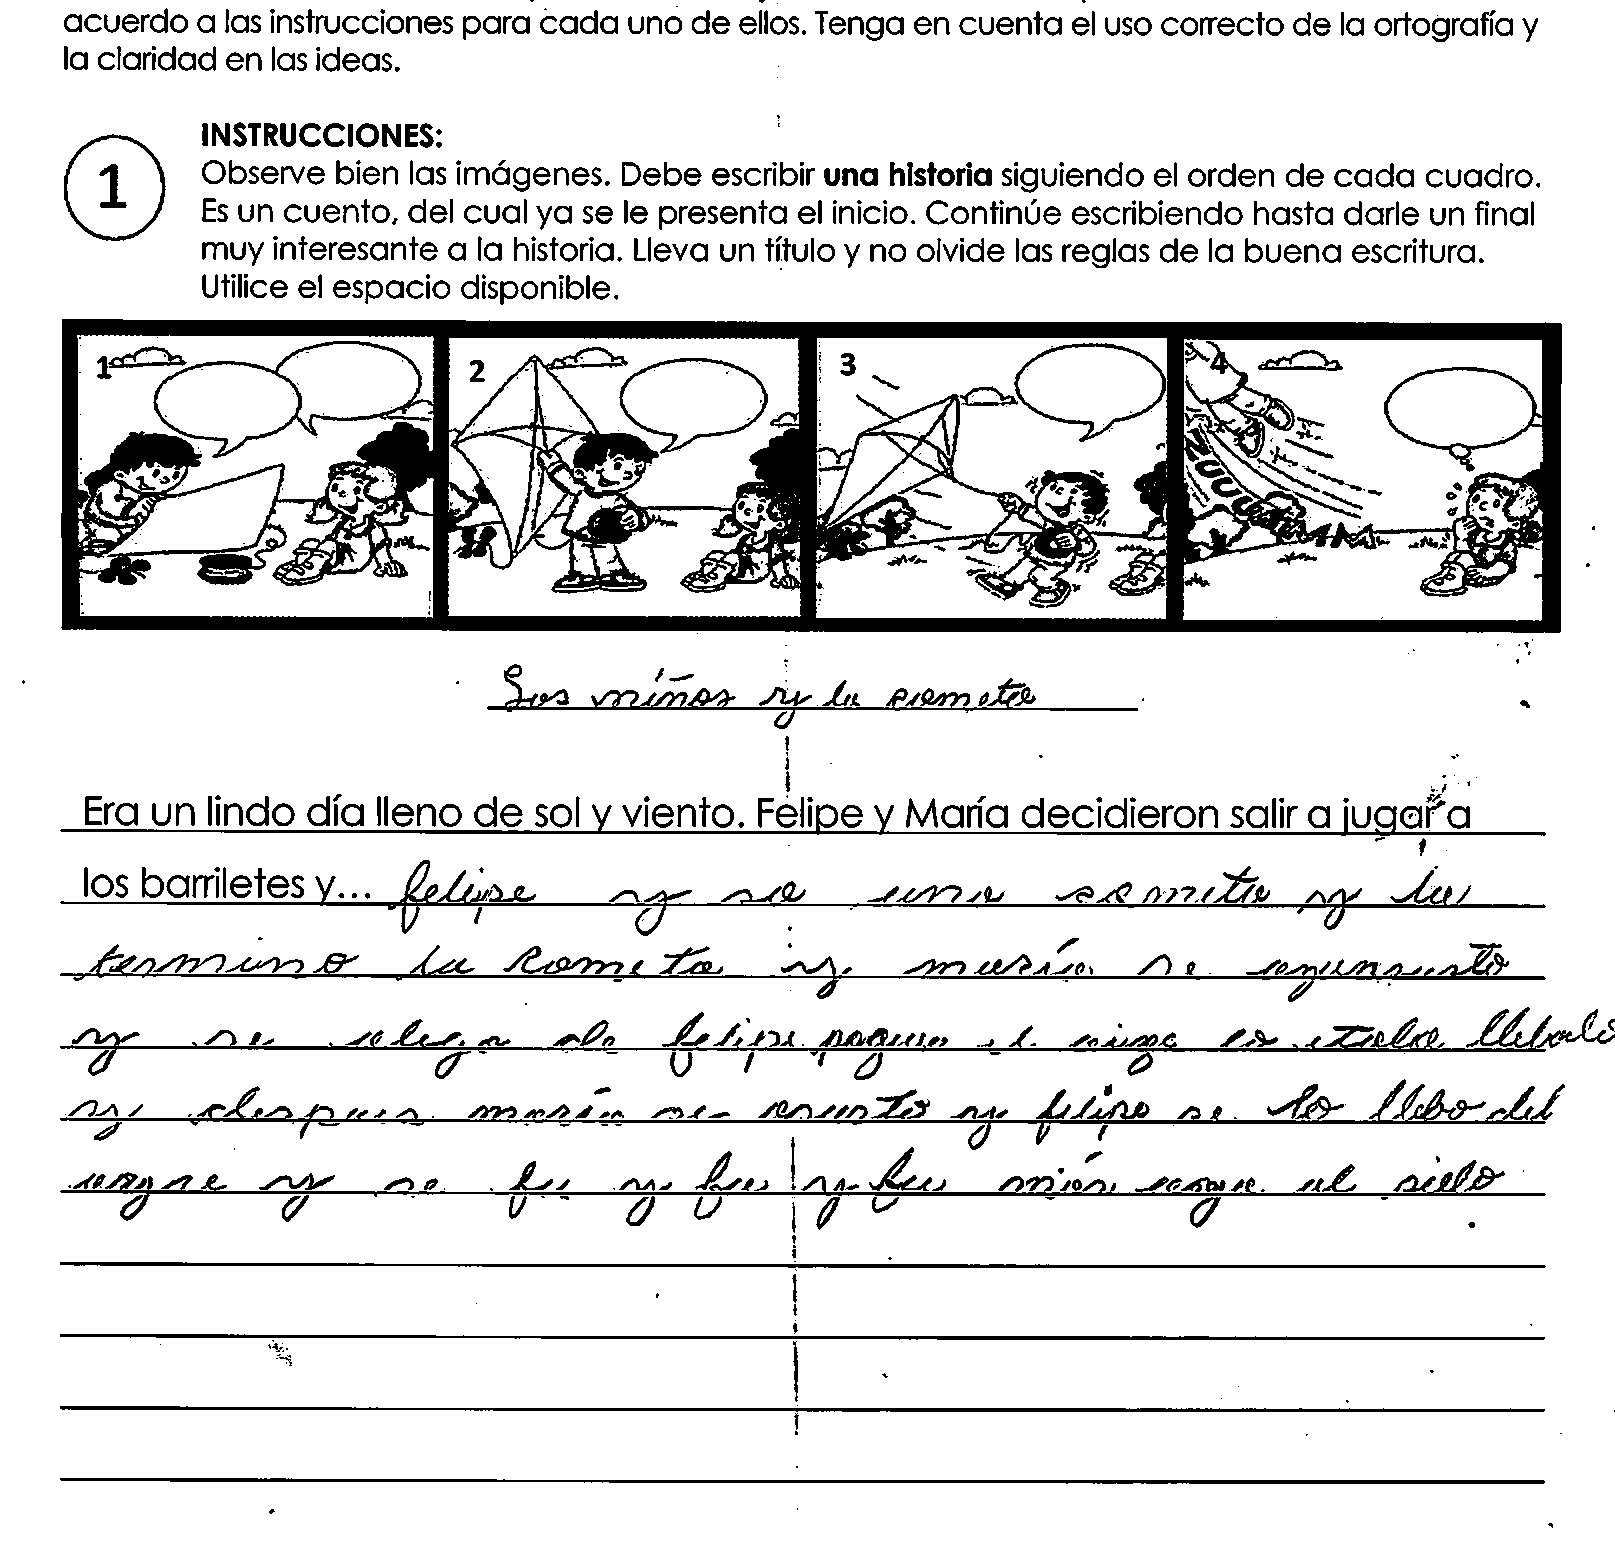 acuerdo a las instrucciones para cada uno de ellos. Tenga en cuenta el uso correcto de la ortografía y
la claridad en las ideas.
1
INSTRUCCIONES:
Observe bien las imágenes. Debe escribir una historia siguiendo el orden de cada cuadro.
Es un cuento, del cual ya se le presenta el inicio. Continúe escribiendo hasta darle un final
muy interesante a la historia. Lleva un título y no olvide las reglas de la buena escritura.
Utilice el espacio disponible.
1 2 3 4
Los niños y la cometa
Era un lindo día lleno de sol y viento. Felipe y María decidieron salir a jugar a
los barriletes y... felipe y so una cometa y la
termino la cometa y maría se
y se felipe el llebalo
y despues maría se asusto y felipe se lo llebo del
aigre y se fu y fue y fue al sielo